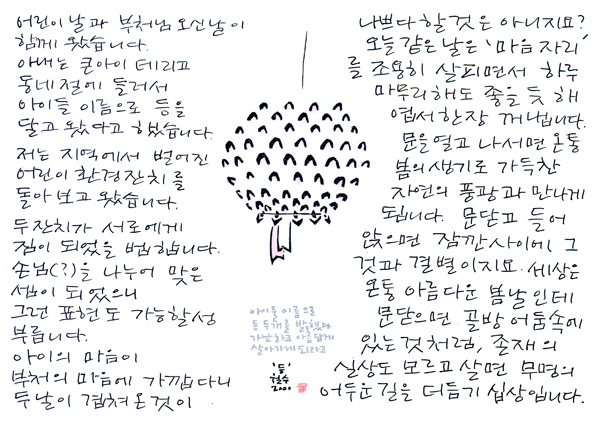 어린이날과 부처님 오신날이
함께 왔습니다.
아내는 큰아이 데리고
동네 절에 들러서
아이들 이름으로 등을
달고 왔다고 했습니다.
저는 지역에서 벌어진
어린이 환경잔치를
돌아보고 왔습니다.
두잔치가 서로에게
짐이 되었을 법합니다.
손님(?)을 나누어 맞은
셈이 되었으니
그런 표현도 가능할성
부릅니다.
아이의 마음이
부처의 마음에 가깝다니
두날이 겹쳐온것이
나쁘다 할것은 아니지요?
오늘 같은 날은 '마음자리'
를 조용히 살피면서 하루
마무리해도 좋을듯 해
엽서한장 꺼냅니다.
문을 열고 나서면 온통
봄의 생기로 가득찬
자연의 풍광과 만나게
됩니다. 문닫고 들어
앉으면 잠깐사이에 그
것과 결별이지요. 세상은
온통 아름다운 봄날인데
문닫으면 골방 어둠속에
있는것 처럼, 존재의
실상도 모르고 살면 무명의
어두운 길을 더듬기 십상입니다.
아이들 이름으로
등 두개를 밝혔다
가난하고 아름답게
살아가게 되라고
'등'
철수
2000